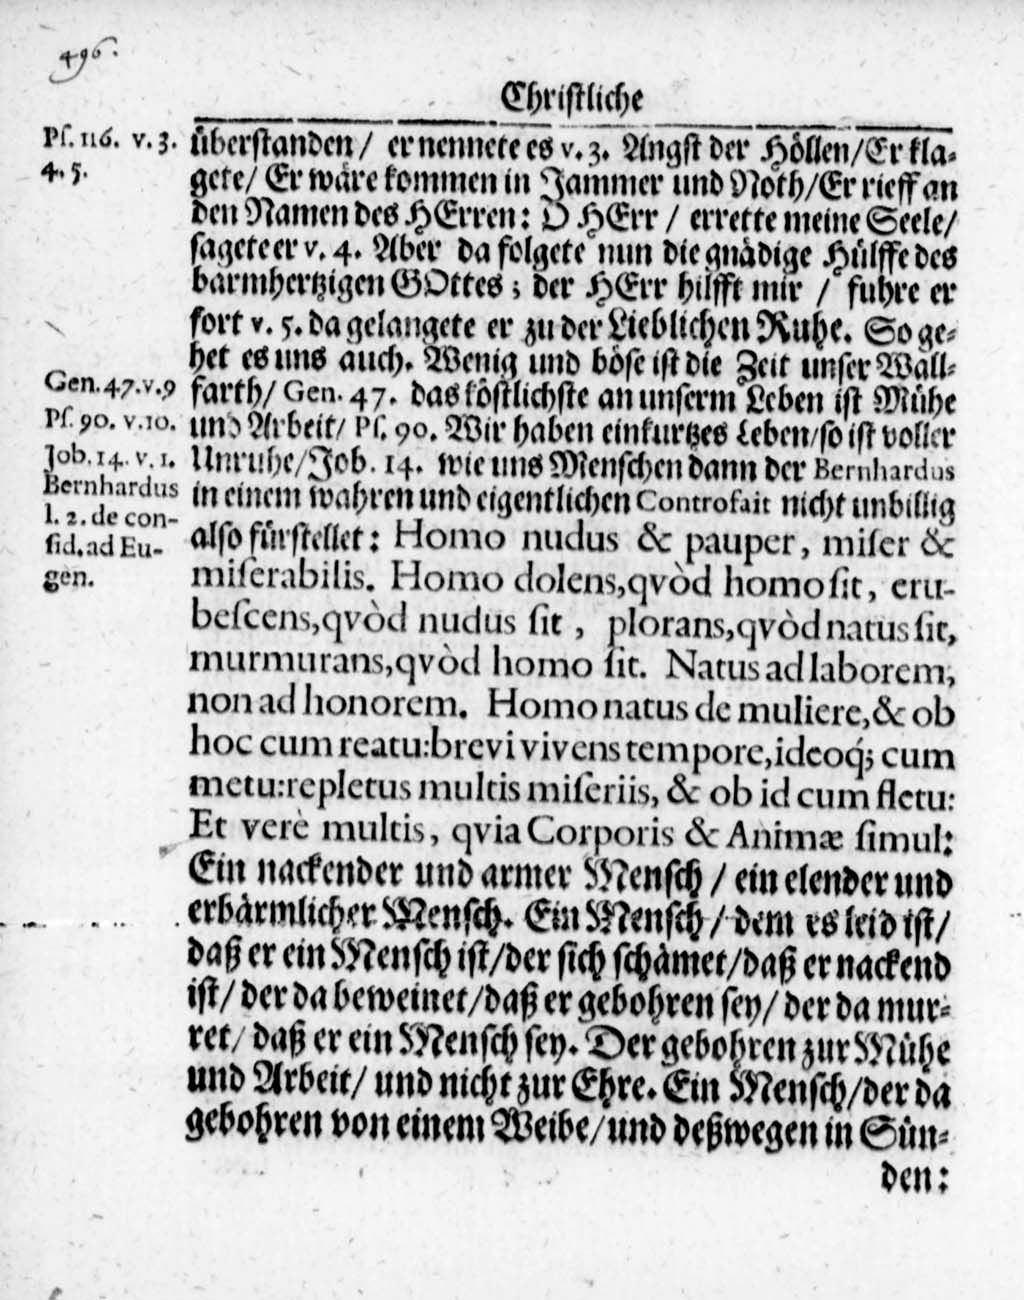 496.
Christliche
Pſ. 116. v. 3.
4. 5.
überſtanden / er nennete es v. 3. Angſt der Höllen/Er kla-
gete/ Er wäre kommen in Jammer und Noth/Er rieff an
den Namen des HErren: O HErr / errette meine Seele/
ſagete er v. 4. Aber da folgete nun die gnädige Hülffe des
barmhertzigen GOttes; der HErr hilfft mir / fuhre er
fort v. 5. da gelangete er zu der Lieblichen Ruhe. So ge-
het es uns auch. Wenig und böſe iſt die Zeit unſer Wall-
Gen. 47. v. 9
farth/ Gen. 47. das köſtlichſte an unſerm Leben iſt Mühe
Pſ. 90. v. 10.
und Arbeit/ Pſ. 90. Wir haben ein kurtzes Leben/ſo iſt voller
Job. 14. v. 1.
Unruhe/Job. 14. wie uns Menſchen dann der Bernhardus
Bernhardus
l. 2. de con-
ſid. ad Eu-
gen.
in einem wahren und eigentlichen Controfait nicht unbillig
alſo fürſtellet: Homo nudus & pauper, miſer &
miſerabilis. Homo dolens,qvòd homo ſit, eru-
beſcens,qvòd nudus ſit , plorans,qvòd natus ſit,
murmurans,qvòd homo ſit. Natus ad laborem,
non ad honorem. Homo natus de muliere,& ob
hoc cum reatu:brevi vivens tempore,ideoq́; cum
metu:repletus multis miſeriis, & ob id cum fletu:
Et verè multis, qvia Corporis & Animæ ſimul:
Ein nackender und armer Menſch / ein elender und
erbärmlicher Menſch. Ein Menſch / dem es leid iſt/
daß er ein Menſch iſt/der ſich ſchämet/daß er nackend
iſt/ der da beweinet/daß er gebohren ſey/ der da mur-
ret/ daß er ein Menſch ſey. Der gebohren zur Mühe
und Arbeit/ und nicht zur Ehre. Ein Menſch/der da
gebohren von einem Weibe/und deßwegen in Sün-
den: